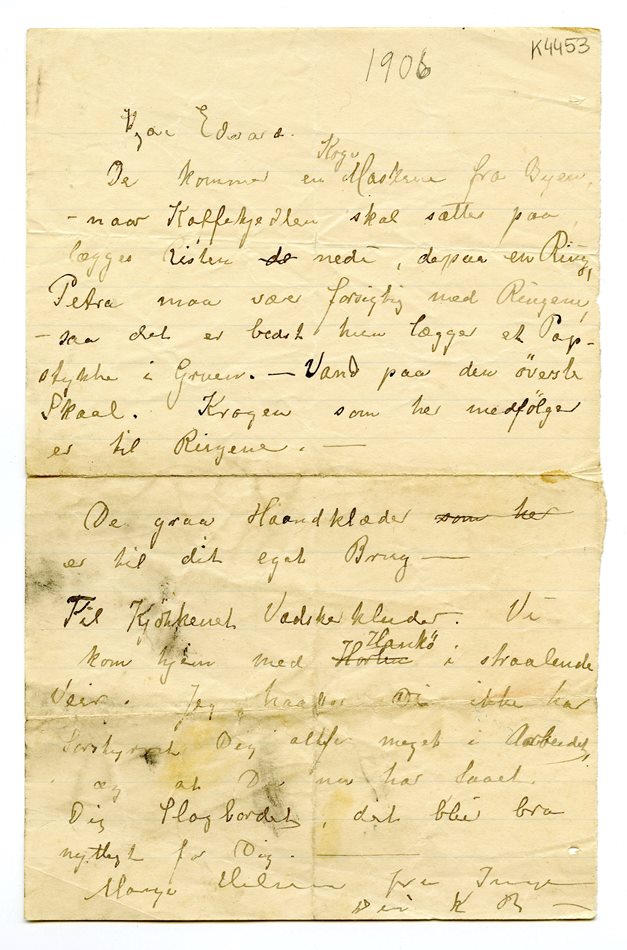 1906
K4453
Kjære Edvard.
Der kommer en Koge Maskine fra Byen,
- naar Kaffekjedlen skal sættes paa
lægges Risten de nedi, derpaa en Ring,
Petra maa være forsigtig med Ringene,
- saa det er bedst hun lægger et Pap-
stykke i Gruen. — Vand paa den överste
Skaal. Krogen som her medfölger
er til Ringene. —
De graa Haandklæder som her
er til dit eget Brug —
Til Kjökkenet Vadskekluder. Vi
kom hjem med Horten Hankö i straalende
Veir. Jeg haaber Vi ikke har
forstyrret Dig altfor meget i Arbeidet,
og at Du nu har faaet
Dig Slagbordet, det blir bra
nyttigt for Dig.
Mange Hilsner fra Inger
Din K B —